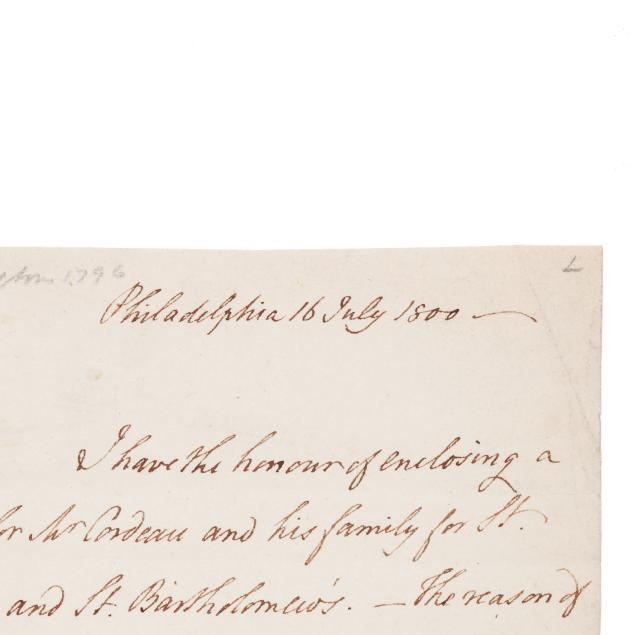 1796
L
Philadelphia 16 July 1800 —
I have the honour of enclosing a
for Mr Cordeau and his family for St.
and St. Bartholomew's. — The reason of